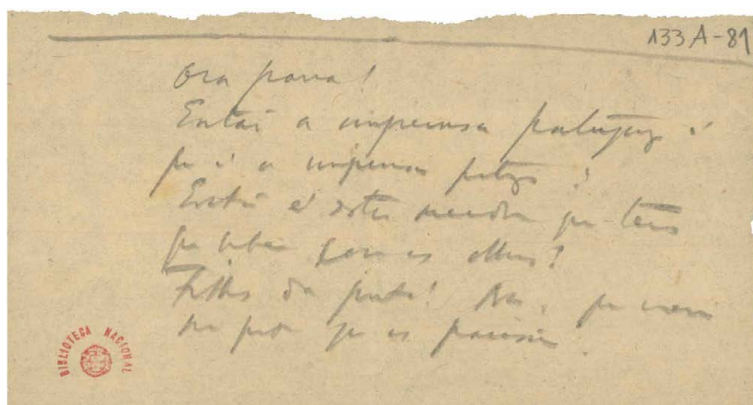 133A-89
Ora porra!
Então a imprensa portuguesa é
que é a imprensa portuguesa?
Então é esta merda que temos
que beber com os olhos?
Filhos da puta! Não, que nem
há puta que os parisse.
BIBLIOTECA NACIONAL